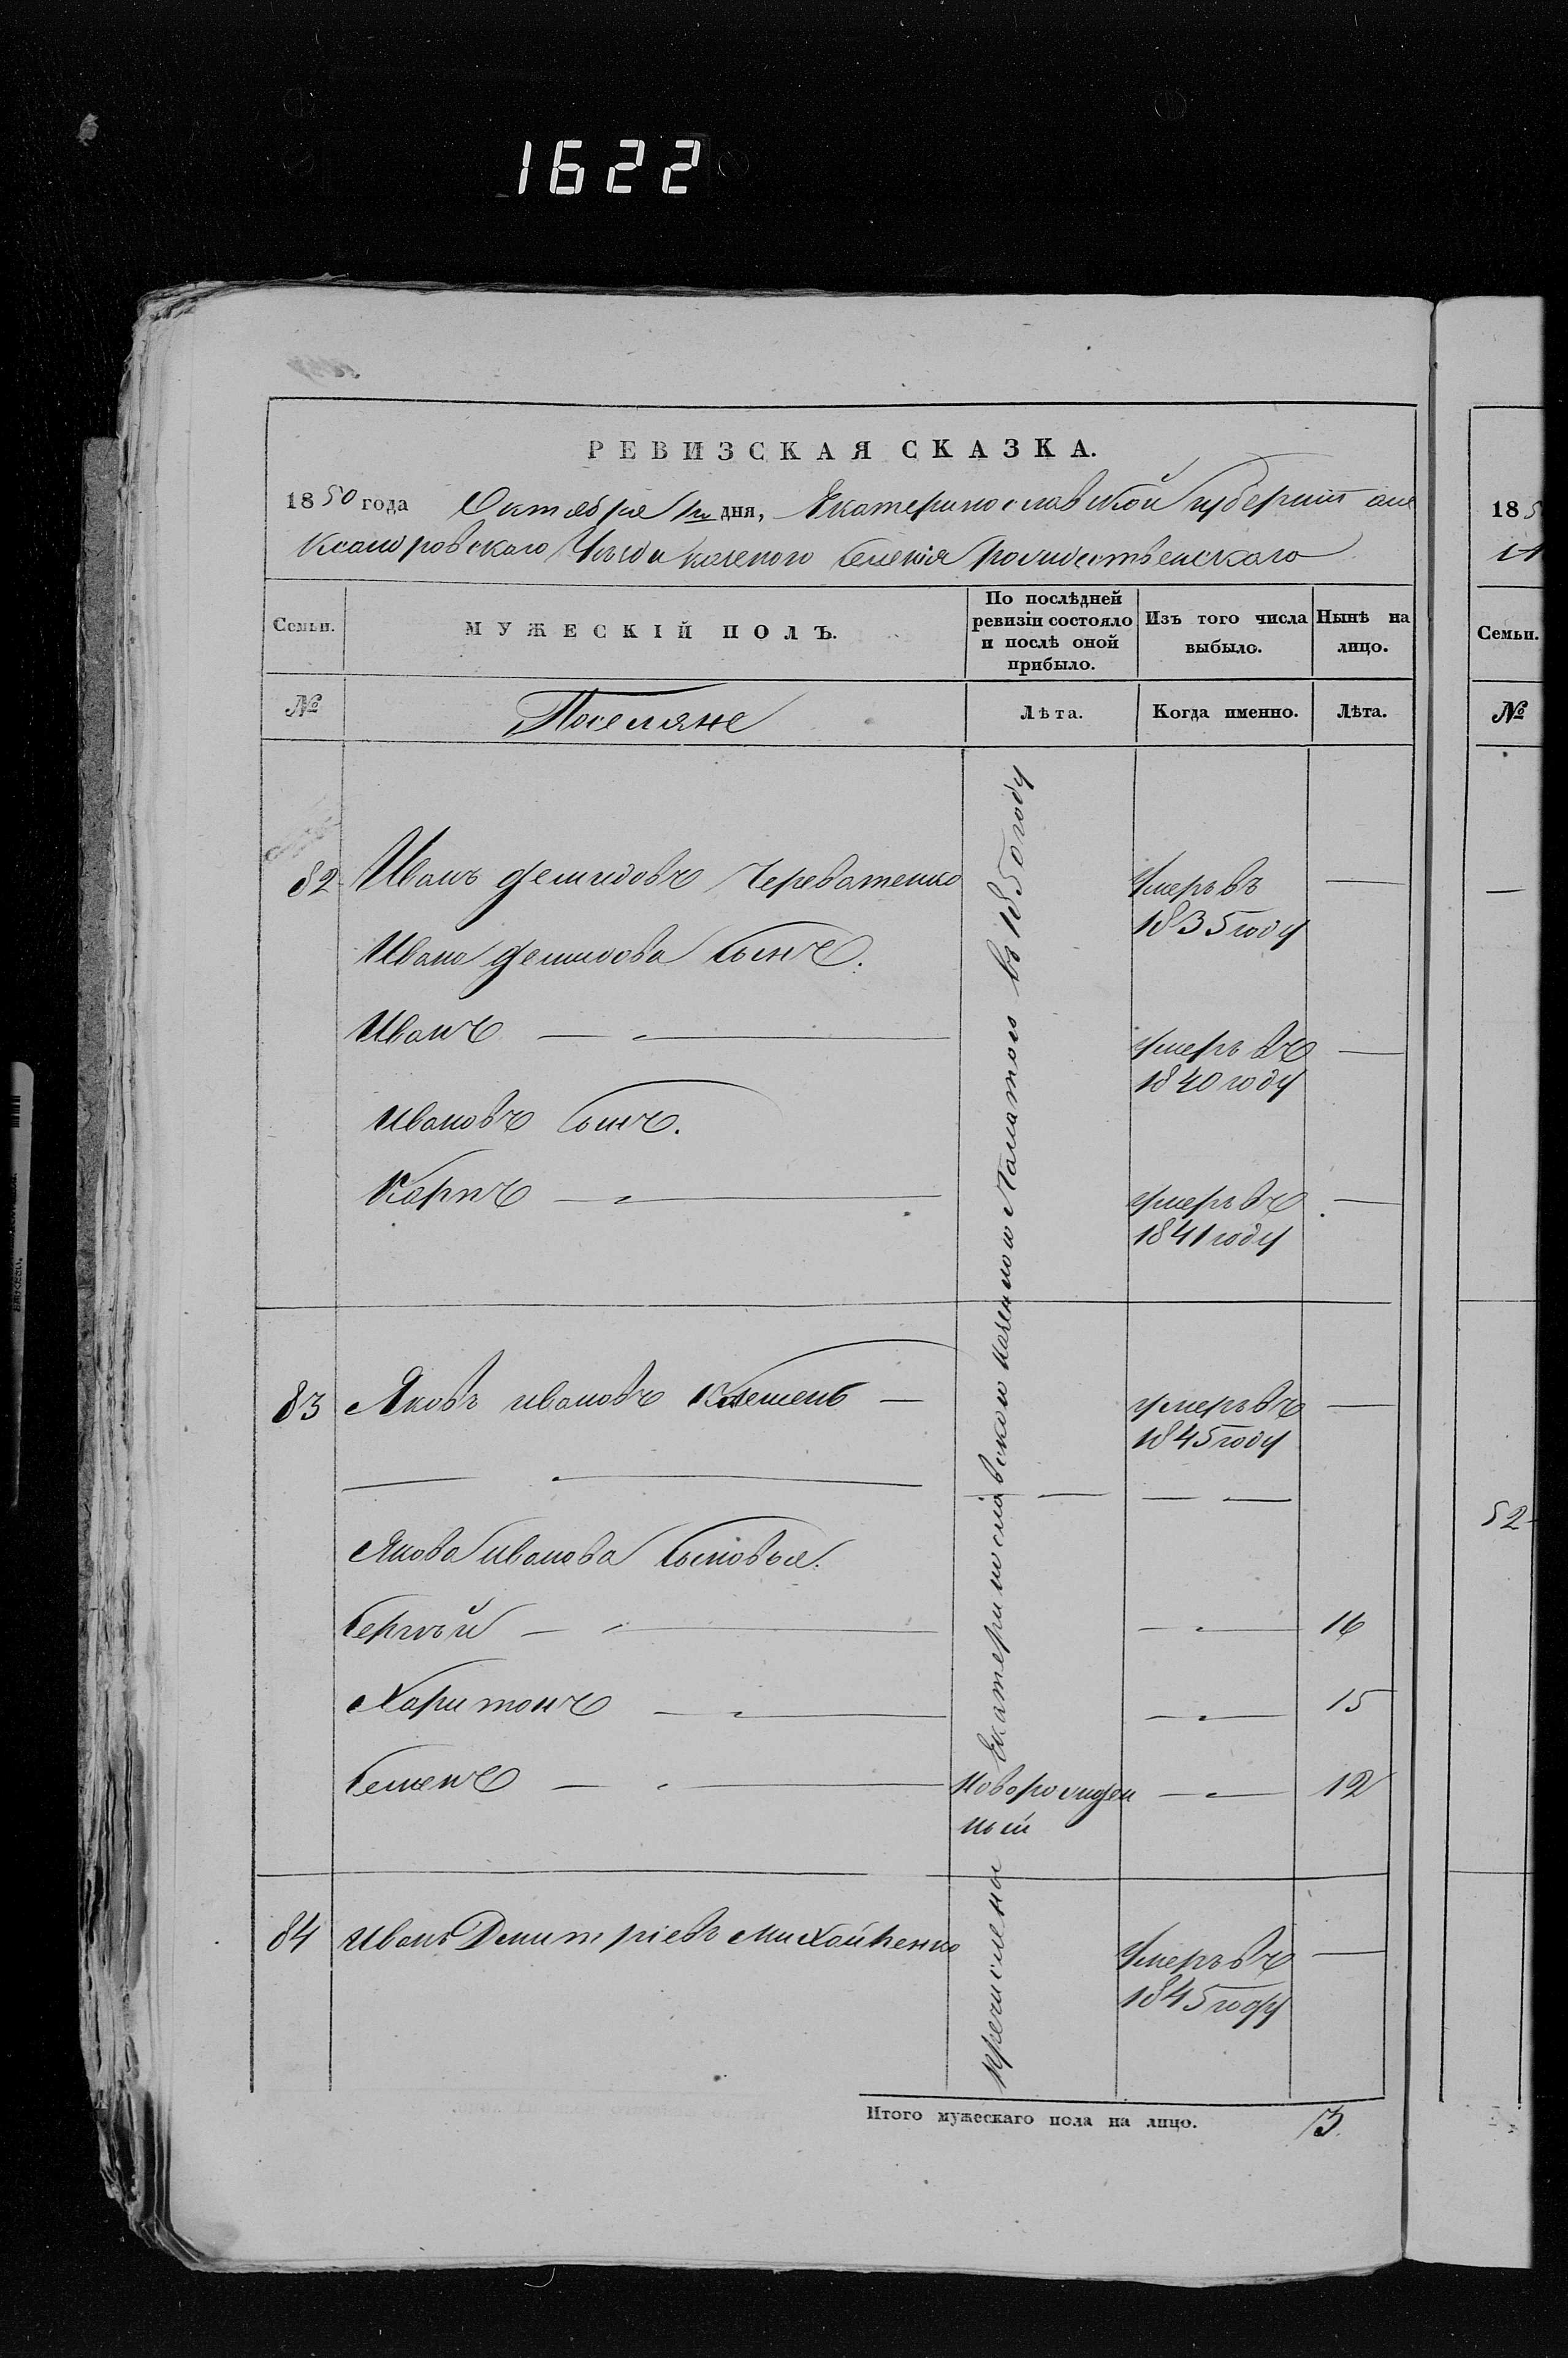 1622
РЕВИЗСКАЯ СКАЗКА.
1850 года Октября дня, Екатеринославской губерніи але
ксандровскаго уѣзда казеного селенія рождественскаго
Семьи.
МУЖЕСКІЙ ПОЛЪ.
По послѣдней ревизіи состояло и послѣ оной прибыло.
Изъ того числа выбыло.
Нынѣ на лицо.
№
Поселяне
Лѣта.
Когда именно.
Лѣта.
82 Иванъ демидовъ Череватенко Умеръ въ —
1835 году
Ивана демидова сынъ.
Иванъ — „ — умеръ въ —
1840 году
Ивановъ сынъ.
Карпъ — „ — умеръ въ —
1841 году
83 Яковъ ивановъ Клешень — умеръ въ —
1845 году
Якова иванова сыновья.
Сергѣй — „ — — „ — 16
Харитонъ — „ — — „ — 15
Семенъ — „ — новорожден — „ — 12
ный
84 Иванъ Дмитріевъ Михайленко Умеръ въ —
1845 году
причислены Екатеринославскою казенною Палатою въ 1850 году
Итого мужескаго пола на лицо. 3.
185
Семьи.
№
—
52